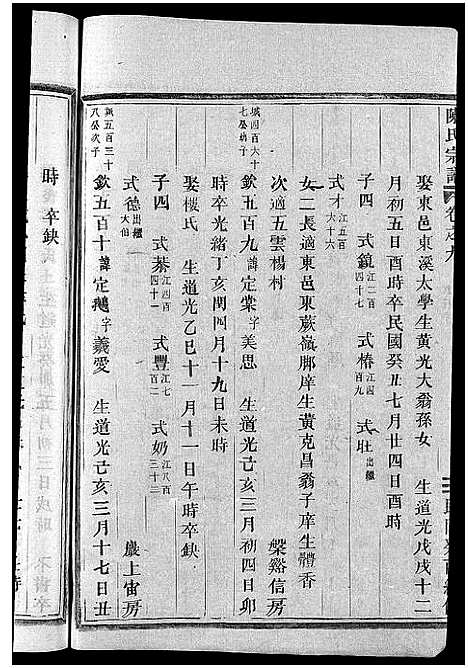 陳氏宗譜 卷之九
娶東邑東溪太學生黃光大翁孫女 生道光戊戌十二
月初五日酉時卒民國癸丑七月廿四日酉時
子四 式鏡江二百四十七 式椿江四百九 式壯出繼
式才江五百六十六
女二長適東邑東蕨嶺腳庠生黃克昌翁子庠生體香
次適五雲楊村 槃谿信房
城四百六十七公嫡子 欽五百九諱定棠字美思 生道光己亥三月初四日卯
時卒光緒丁亥閏四月十九日未時
娶樓氏 生道光乙巳十一月十一日午時卒缺
子四 式棊江四百四十一 式豐江七百二 式奶江八百三十三
式德出繼大伯 嚴上宙房
城五百三十八公次子 欽五百十諱定 字羲愛 生道光己亥三月十七日丑
時卒缺